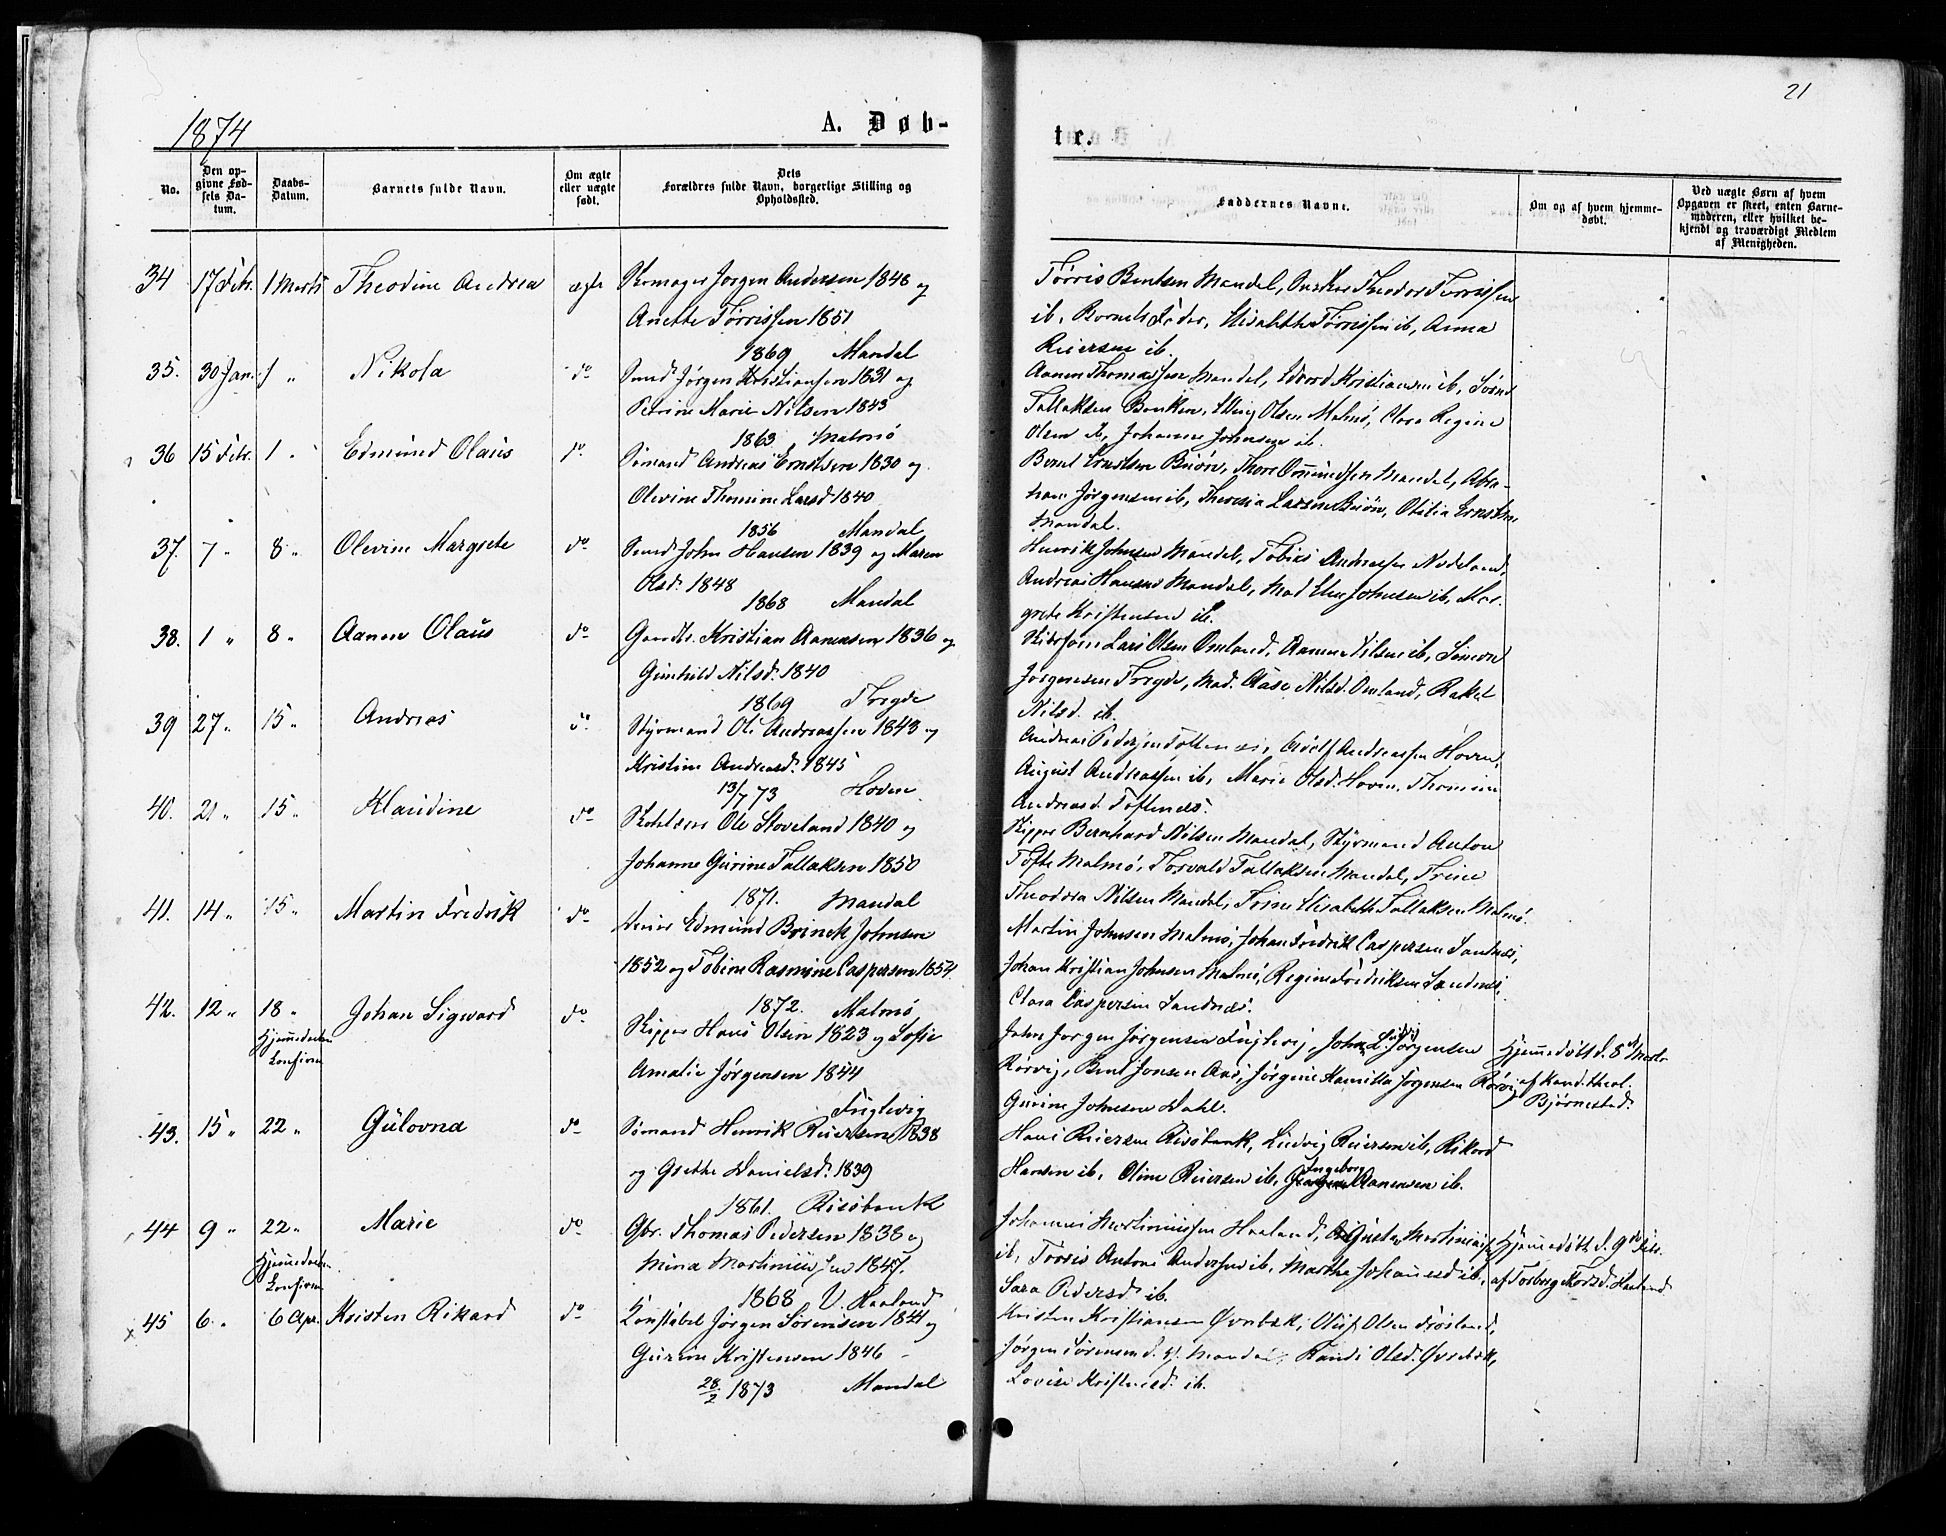 21
1874
A. Døb-
tre.
No.
Den op-
givne Fød-
sels Da-
tum.
Daabs-
Datum.
Barnets fulde Navn.
Om ægte
eller uægte
født.
Dets
Forældres fulde Navn, borgerlige Stilling og
Opholdssted.
Faddernes Navne.
Om og af hvem hjemme-
døbt.
Ved uægte Børn af hvem
Opgaven er skeet, enten Barne-
moderen, eller hvilket be-
kjendt og troværdigt Medlem
af Menigheden.
34 17 Febr. 1 Marts Theodine Andrea ægte Skomager Jørgen Andersen 1848 og
Anette Tørrissen 1851
1869 Mandal
Tørris Bentsen Mandal, Theodor Tørrissen
ib, Barnets Fader, Elisabeth Tørrissen ib, Anna
Reiersen ib.
35. 30 Jan. 1 " Nikola do Smed Jørgen Kristiansen 1831 og
Petrine Marie Nilsen 1843
1863 Malmø
Aanen Thomassen Mandal, Edvard Kristiansen ib,
Tallaksen Olsen Malmø, Clara Regine
Olsen ib, Johanne Johnsen ib.
36 15 Febr. 1 " Edmund Olaus do Sømand Andreas Erntsen 1830 og
Olevine Thomine Larsd 1840
1856 Mandal
Bernt Erntsen Thore Omundsen Mandal, Abra-
ham Jørgensen ib, Theresia Larsen Otilia Erntsen
Mandal.
37. 7 " 8 " Olevine Margrete do Smed John Hansen 1839 og Maren
Olsd. 1848
1868 Mandal
Henrik Johnsen Mandal, Tobias Andreassen Nodeland,
Andreas Hansen Mandal, Mad Else Johnsen ib, Mar-
grete Kristensen ib.
38. 1 " 8 " Aanen Olaus do Gaardbr. Kristian Aanensen 1836 og
Gunhild Nilsd. 1840
1869 Tregde
Lars Olsen Omland, Aanen Nilsen ib, Simon
Jørgensen Tregde, Mad. Aase Nilsd. Omland, Rakel
Nilsd. ib.
39 27 " 15 " Andreas do Styrmand Ole Andreassen 1843 og
Kristine Andreasd. 1845
13/7 73 Hoven
Andreas Pedersen Toftenes, Adolf Andreassen Hoven,
August Andreassen ib, Marie Olsd. Hoven, Thomine
Andreasd. Toftenes.
40. 21 " 15 " Klaudine do Ole Stoveland 1840 og
Johanne Gurine Tallaksen 1850
1871. Mandal
Skipper Bernhard Nilsen Mandal, Styrmand Anton
Tofte Malmø, Torvald Tallaksen Mandal, Trine
Theodora Nilsen Mandal, Elisabeth Tallaksen Malmø
41. 14 " 15 " Martin Fredrik do Edmund Brinck Johnsen
1852 og Tobine Rasmine Caspersen 1854
1872. Malmø
Martin Johnsen Malmø, Johan Fredrik Caspersen Sandnes,
Johan Kristian Johnsen Malmø, Regine Fredriksen Sandnes,
Clara Caspersen Sandnes.
42. 12 " 18 " Johan Sigward do Skipper Hans Olsen 1823 og Sofie
Hjemmedøbt
Amalie Jørgensen 1844
Fuglevig
John Jørgen Jørgensen Fuglevig, John L. Jørgensen
Rørvig, Bent Jonsen Aas, Jørgine Kamilla Jørgensen Rørvig,
Gurine Johnsen Dahl.
Hjemmedøbt d. 8de Marts
af Kand. theol.
Bjørnestad.
43. 15 " 22 " Gulovna do Sømand Henrik Reiersen 1838
og Grethe Danielsd. 1839
1861. Risøbank
Hans Reiersen Risøbank, Ludvig Reiersen ib, Rikard
Hansen ib, Oline Reiersen ib, Ingeborg Aanensen ib.
44 9 " 22 " Marie do Gbr. Thomas Pedersen 1838 og
Hjemmedøbt
Mina Martiniussen 1847.
1868 V. Haaland
Johannes Martiniussen Haaland, Martiniussen
ib, Tørris Antoni Andersen ib, Marthe Johannesd ib,
Sara Pedersd ib.
Hjemmedøbt d. 9de Febr.
af Torborg Haaland
45 6 " 6 Apr. Kristen Rikard do Konstabel Jørgen Sørensen 1844 og
Gurine Kristensen 1846
28/2 1873 Mandal
Kristen Kristiansen Øvrebæk, Oluf Olsen
Jørgen Sørensen Mandal, Randi Olsd. Øvrebæk,
Lovise Kristensd. ib.